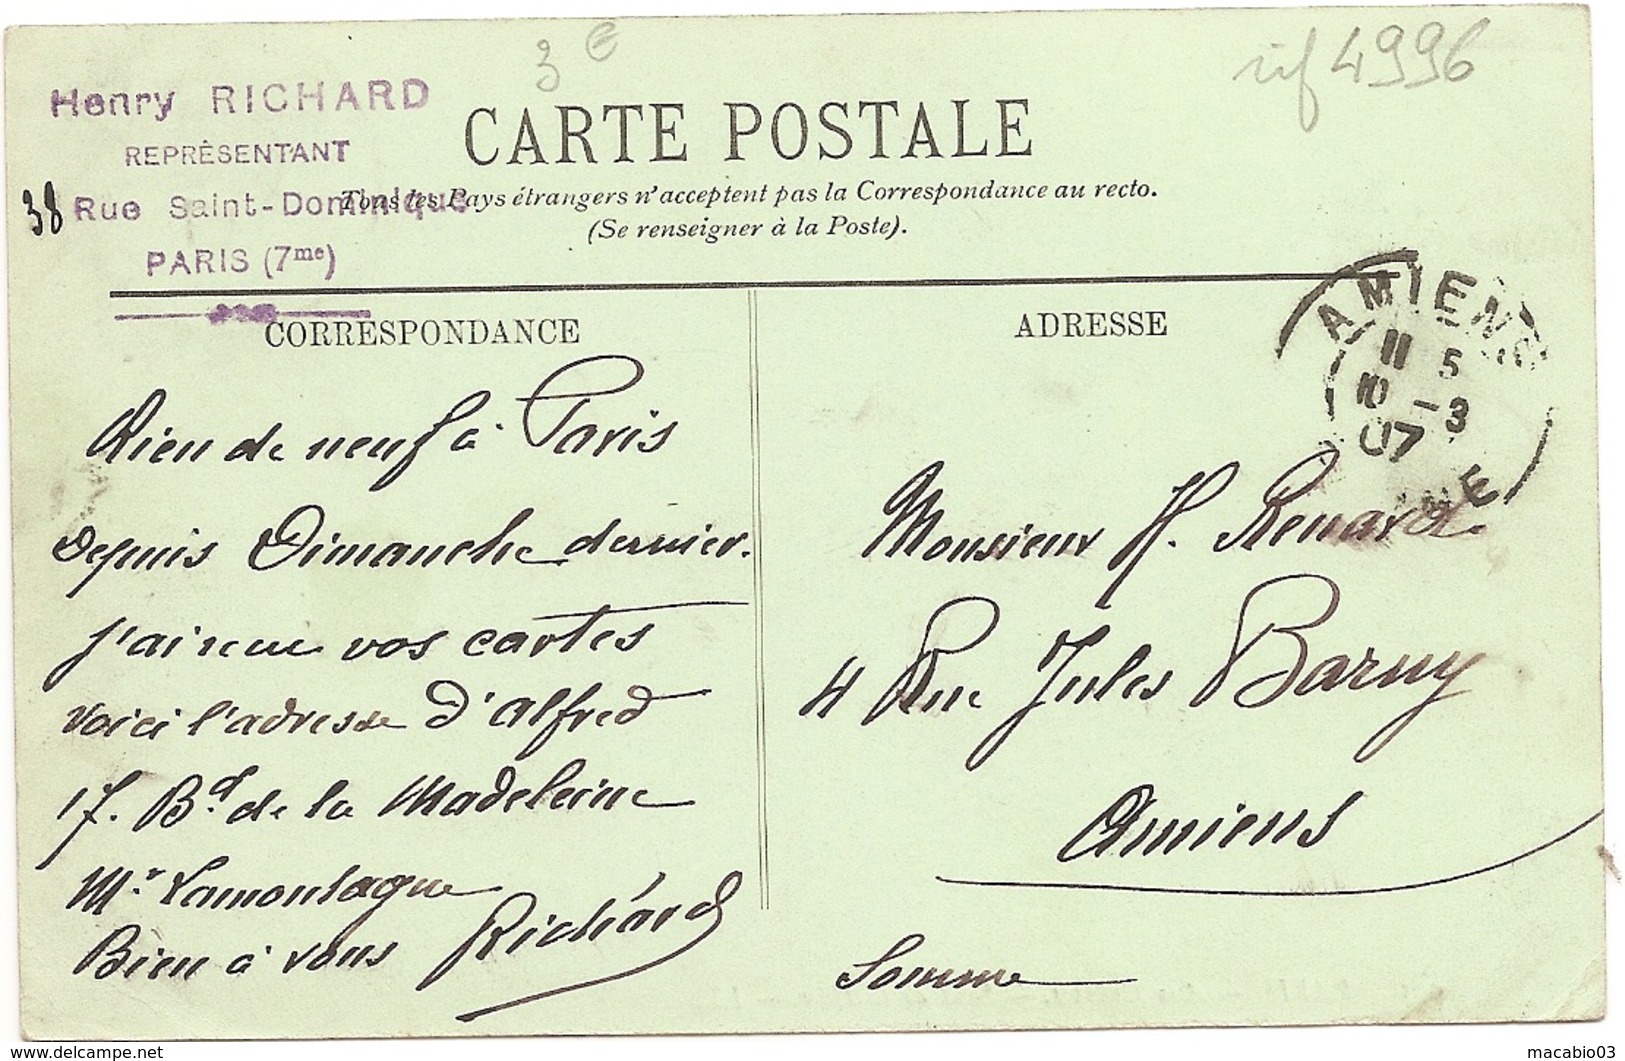 3 €
rif 4996
Henry RICHARD
REPRÉSENTANT
38 Rue Saint-Dominique
PARIS (7me)
CARTE POSTALE
Tous les Pays étrangers n'acceptent pas la Correspondance au recto.
(Se renseigner à la Poste).
CORRESPONDANCE
Rien de neuf à Paris
depuis Dimanche dernier.
J'ai reçu vos cartes
Voici l'adresse d'Alfred
17. Bd. de la Madeleine
Mr. Lamontagne
Bien à vous Richard
ADRESSE
AMIENS
11 5
10 -3
07
ME
Monsieur H. Renard
4 Rue Jules Barny
Amiens
Somme
delcampe.net
macabio03